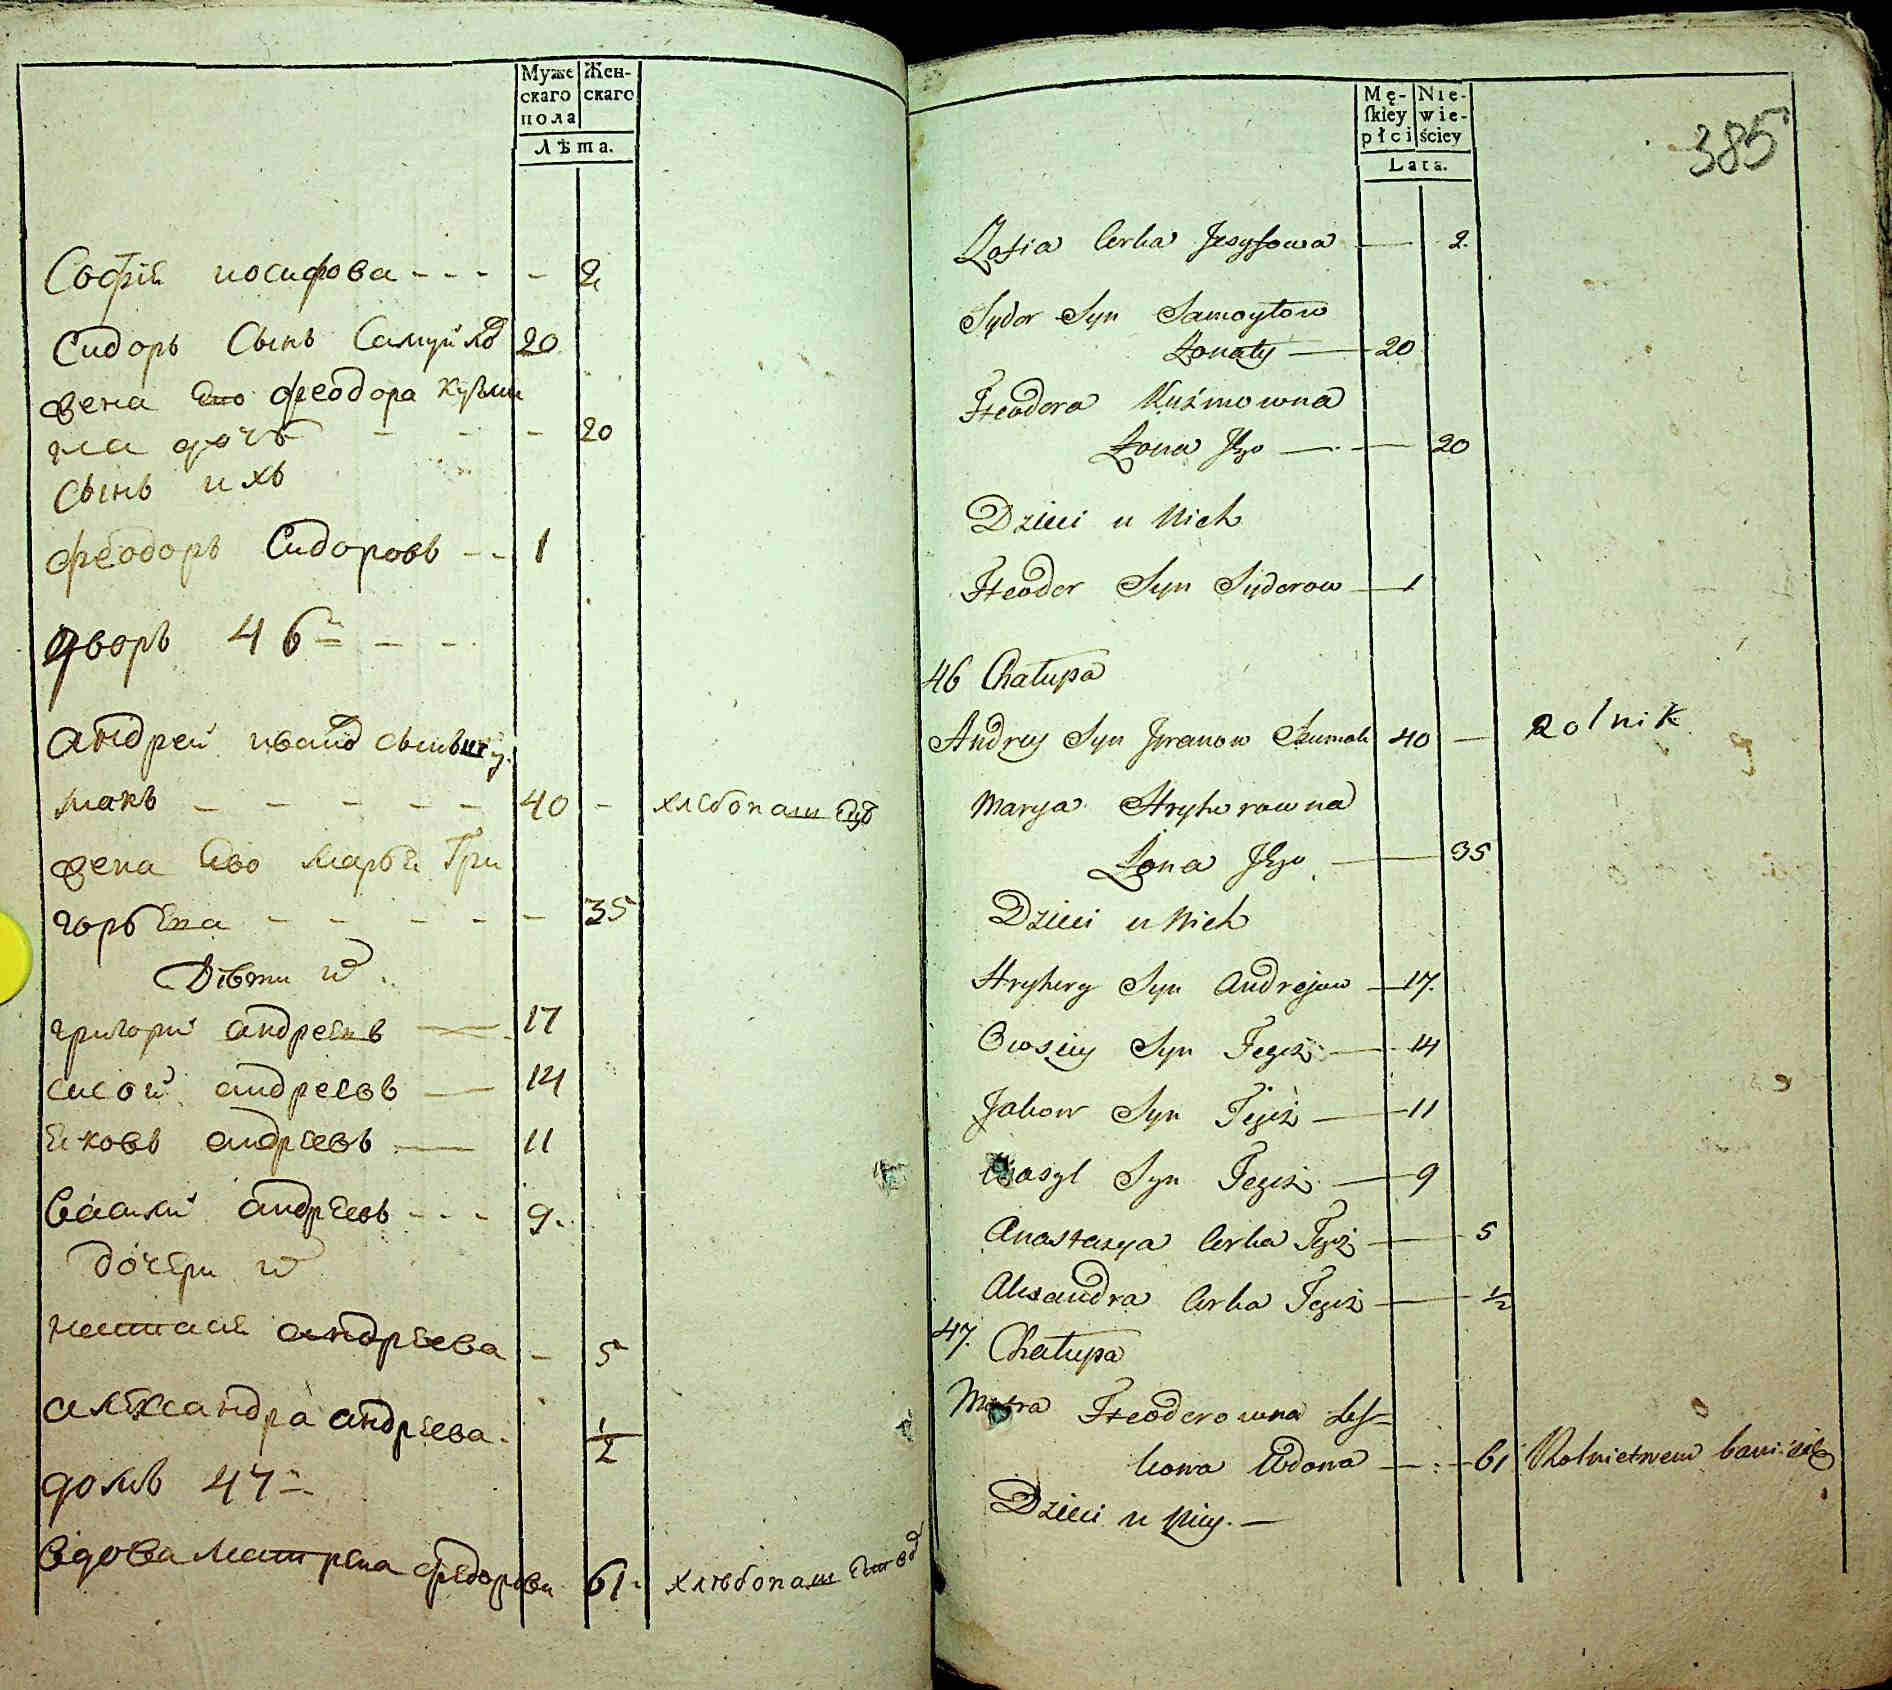 Муже
скаго
пола
Жен-
скаго
Лѣта.
Софіѣ иосифова - - - - 2
Сидоръ Сынъ Самуйлов 20
жена Ево феодора Кузми
на дочь - - - 20
Сынъ ихъ
феодоръ Сидоровъ - - 1
Дворъ 46й - -
андрей иванов сынъ шу
макъ - - - - - 40 - хлебопашец
жена Ево Марья Гри
горьева - - - - - 35
Дѣти их
григорий андреевъ — 17
сисой андреевъ — 14
Яковъ андреевъ — 11
Василий андреевъ - - - 9.
дочери их
настася андреева - 5
алеѯандра андреева - 1/2
домъ 47й
вдова матрена федорова 61. хлѣбопашествод
Mę-
ſkiey
płci
Nie-
wie-
ściey
Lata.
385
Zofia Corka Jozyfowa — 2
Sydor Syn Samoyłow
Żonaty — 20
Fteodora Kuźmowna
Żona Jego — 20
Dzieci u Nich
Fteodor Syn Syderow — 1
46 Chałupa
Andrey Syn Jwanow Szumak 40 — Rolnik
Marya Hryhorowna
Żona Jego — 35
Dzieci u Nich
Hryhory Syn Andrejow — 17.
Owsiey Syn Tegoż — 14
Jakow Syn Tegoż — 11
Wasyl Syn Tegoż — 9
Anastazya Corka Tegoż — 5
Alexandra Corka Tegoż — 1/2
47. Chałupa
Motra Fteoderowna Leſ-
kowa Wdowa — 61 Rolnictwem bawi się
Dzieci u Niey. —